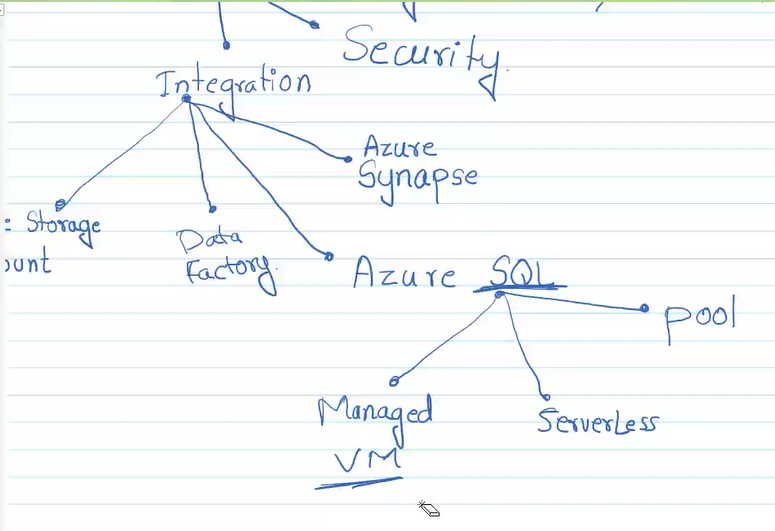 Security.
Integration
Azure
Synapse
: Storage
ount
Data
Factory.
Azure SQL
pool
Managed
VM
Serverless